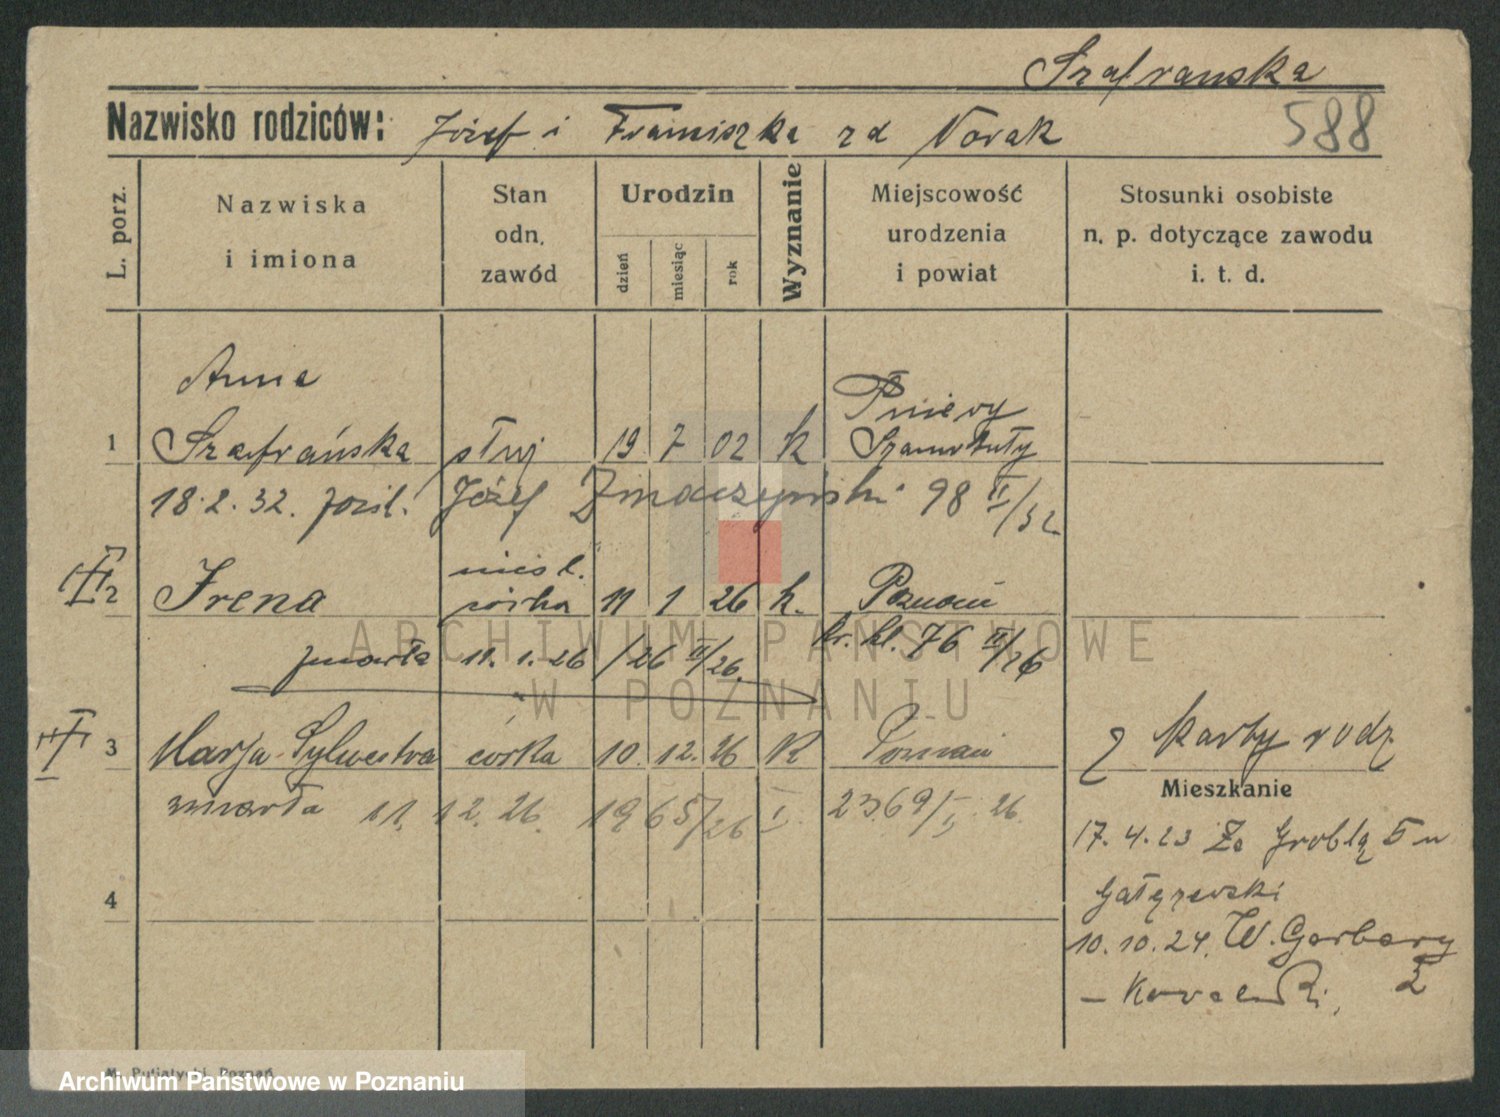 Szafranska
Nazwisko rodziców: Józef i Franciszka zd Novak
588
L. porz.
Nazwiska
i imiona
Stan
odn.
zawód
Urodzin
dzień
miesiąc
rok
Wyznanie
Miejscowość
urodzenia
i powiat
Stosunki osobiste
n. p. dotyczące zawodu
i. t. d.
Anna
1 Szafrańska słuj 19 7 02 k Pnievy
Szamotuły
18.2.32. Józef 98 II/32
2 Irena nieśl. córka 11 1 26 k. Poznań
zmarła 11.1.26 /26 II/26 kr. kl. 76 III/26
3 Marja Sylwestra córka 10. 12. 26 K Poznań
z karty rodz
zmarła 11. 12. 26. 1965/26 I. 2369/I. 26.
Mieszkanie
17.4.23 Za Groblą 5 u
Gałęzewski
4
10.10.24. W. Garbary
2
ARCHIWUM PAŃSTWOWE
W POZNANIU
M. Putiatycki, Poznań
Archiwum Państwowe w Poznaniu